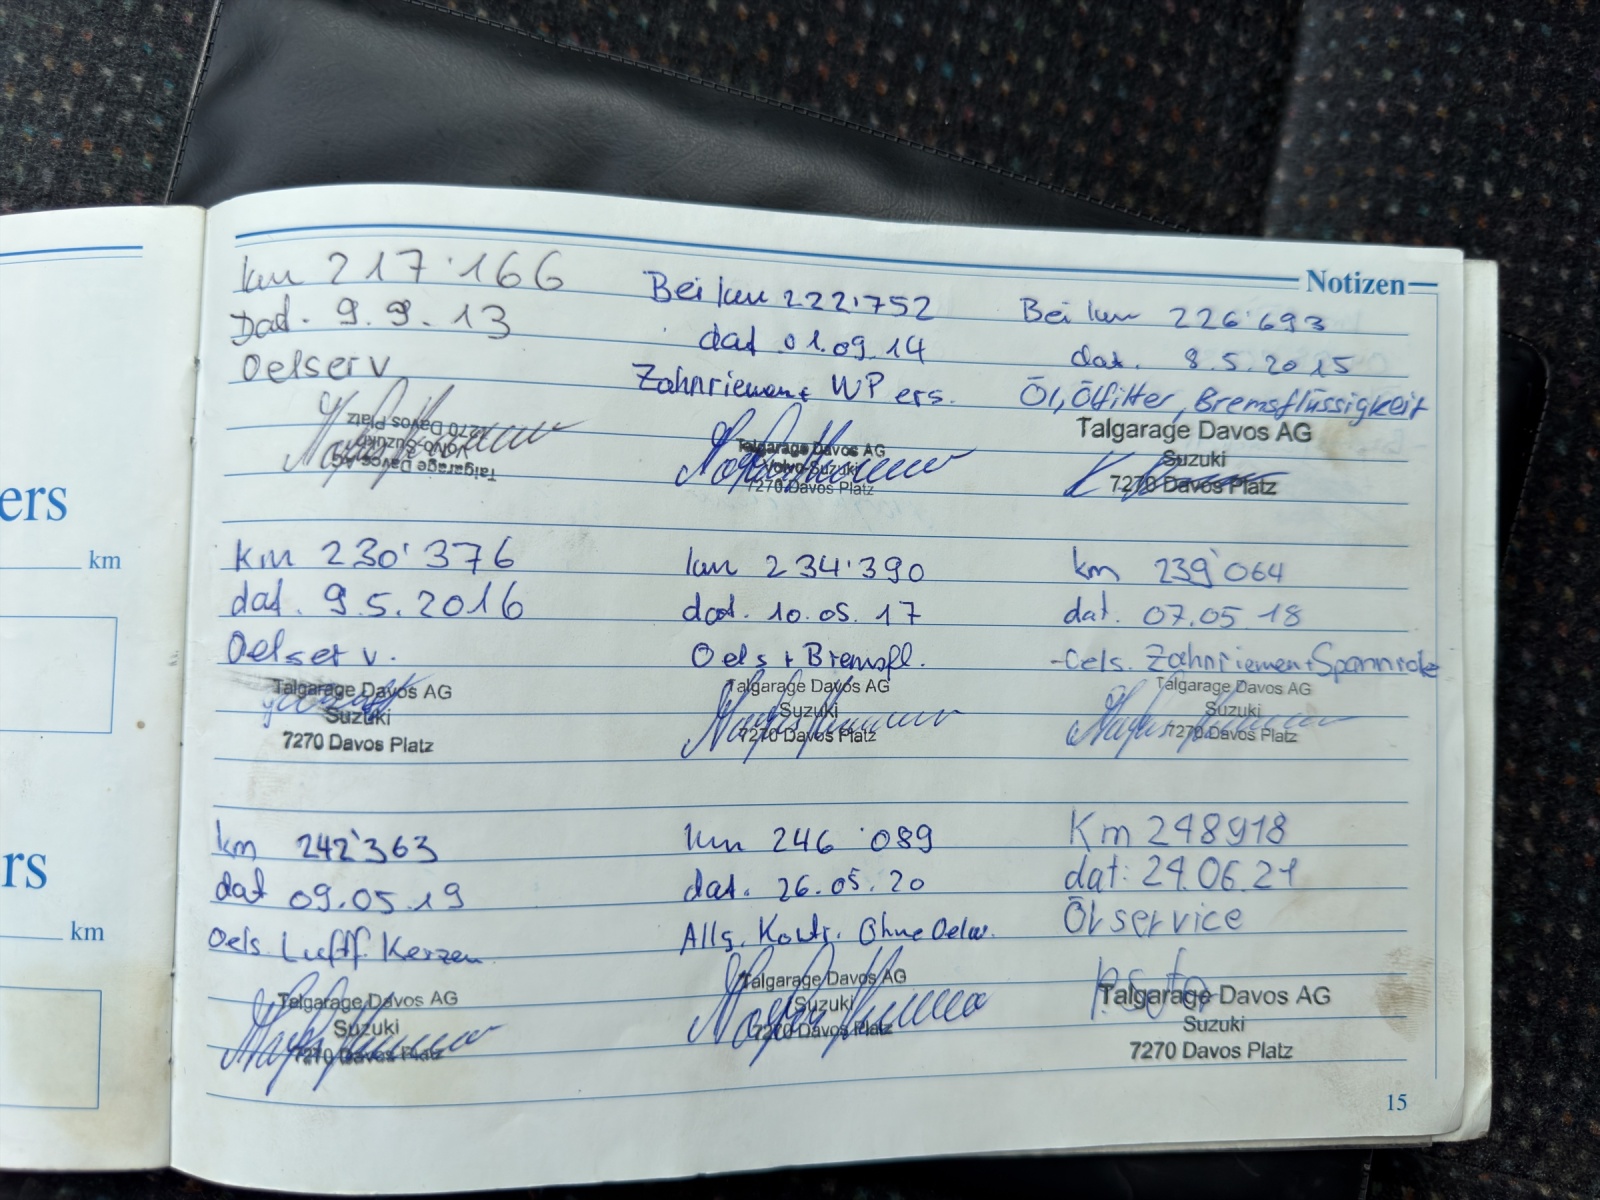 Notizen
km 217'166
Dat. 9.9.13
Oelserv.
Talgarage Davos AG
Volvo-Suzuki
7270 Davos Platz
Bei km 222'752
dat 01.09.14
Zahnriemen+ WP ers.
Talgarage Davos AG
Volvo-Suzuki
7270 Davos Platz
Bei km 226'693
dat. 8.5.2015
Öl, Ölfilter, Bremsflüssigkeit
Talgarage Davos AG
Suzuki
7270 Davos Platz
km 230'376
dat. 9.5.2016
Oelserv.
Talgarage Davos AG
Suzuki
7270 Davos Platz
km 234'390
dat. 10.05.17
Oels + Bremsfl.
Talgarage Davos AG
Suzuki
7270 Davos Platz
km 239'064
dat. 07.05.18
-Oels. Zahnriemen+Spannrolle
Talgarage Davos AG
Suzuki
7270 Davos Platz
km 242'363
dat 09.05.19
Oels. Luftf. Kerzen
Talgarage Davos AG
Suzuki
7270 Davos Platz
km 246'089
dat. 26.05.20
Allg. Kontr. Ohne Oelw.
Talgarage Davos AG
Suzuki
7270 Davos Platz
Km 248918
dat: 24.06.21
Ölservice
Talgarage Davos AG
Suzuki
7270 Davos Platz
15
ers
km
rs
km